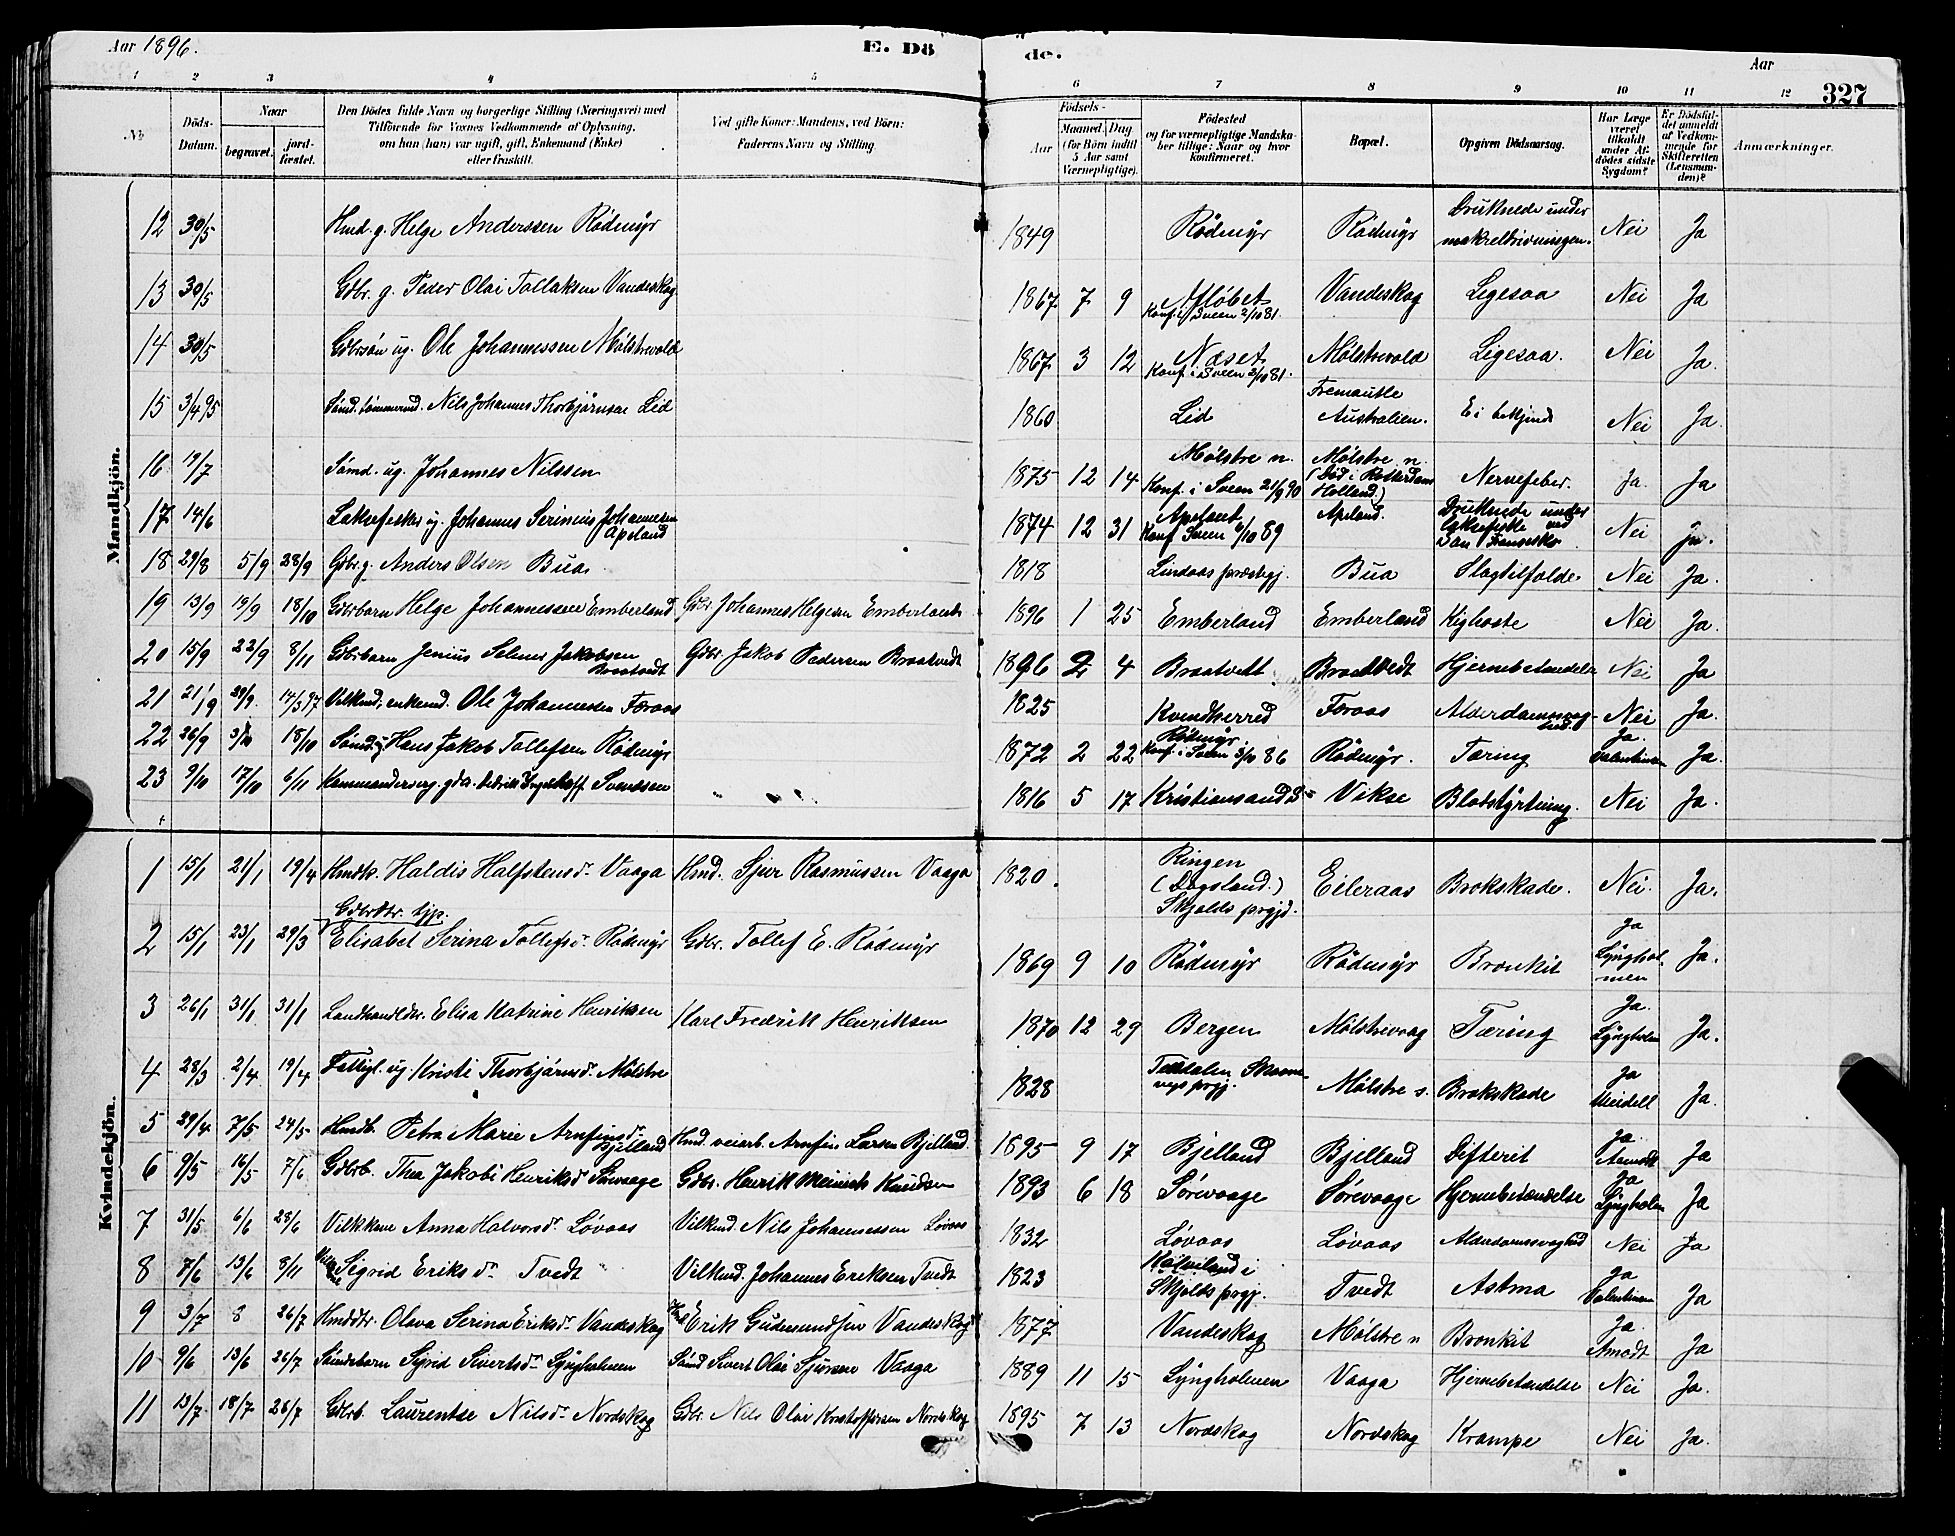 Aar 1896. E. Dö
de. Aar
327
1 2 3 4 5 6 7 8 9 10 11 12
№ Döds-Datum. Naar begravet. jordfæstet. Den Dödes fulde Navn og borgerlige Stilling (Næringsvei) med Tilföiende for Voxnes Vedkommende af Oplysning, om han (hun) var ugift, gift, Enkemand (Enke) eller fraskilt. Ved gifte Koner: Mandens, ved Börn: Faderens Navn og Stilling.
Födsels- Aar Maaned. Dag (for Börn indtil 5 Aar samt Værnepligtige). Födested og for værnepligtige Mandskaber tillige: Naar og hvor konfirmeret. Bopæl. Opgiven Dödsaarsag. Har Læge været tilkaldt under Afdödes sidste Sygdom? Er Dödsfaldet anmeldt af Vedkommende for Skifteretten (Lensmanden)? Anmærkninger.
Mandkjön.
12 30/5 Hmd. g. Helge Anderssen Rödmyr 1849 Rödmyr Rödmyr Druknede under makreldrivningen. Nei Ja
13 30/5 Gdbr. g. Peder Olai Tollaksen Vandeskog 1867 7 9 Aflöbet Konf. i Sveen 2/10 81. Vandeskog Ligesaa Nei Ja
14 30/5 Gdbrsøn ug. Ole Johannessen Mölstrevold 1867 3 12 Næset Konf. i Sveen 2/10 81. Mölstrevold Ligesaa. Nei Ja.
15 3/4 95 Sömd. tömmermd. Nils Johannes Thorbjörnsen Lid 1860 Lid Fremantle Australien. Ei bekjendt Nei Ja.
16 19/7 Sömd. ug. Johannes Nilssen 1875 12 14 Mölstre n. Konf. i Sveen 21/9 90 Mölstre n. (Död i Rotterdam Holland.) Nervefeber. Ja. Ja
17 14/6 Laksefisker ug. Johannes Serinius Johannesen Apeland 1874 12 31 Apeland Konf Sveen 6/10 89 Apeland. Druknede under laksefiske ved San Fransesko Nei Ja.
18 29/8 5/9 28/9 Gdbr. g. Anders Olsen Bua. 1818 Lindaas præstegj. Bua Slagtilfælde. Nei Ja.
19 13/9 19/9 18/10 Gdbrbarn Helge Johannessen Emberland Gdbr. Johannes Helgesen Emberland 1896 1 25 Emberland Emberland Kighoste Nei Ja.
20 15/9 22/9 8/11 Gdbrbarn Jenius Selmer Jakobsen Braatvedt Gdbr. Jakob Pedersen Braatvedt 1896 2 4 Braatvedt Braatvedt Hjernebetændelse Nei Ja
21 21/9 29/9. 14/3 97 Vilkmd, enkemd. Ole Johannessen Foraas 1825 Kvindherred Foraas Alderdomssvaghed. Nei Ja.
22 26/9 3/10 18/10 Sömd. ug. Hans Jakob Tollefsen Rödmyr 1872 2 22 Rödmyr Konf. i Sveen 3/10 86 Rödmyr. Tæring Ja. Valentinsen Ja.
23 9/10 17/10 6/11 Kommandersergt. Fredrik Ingelhoff Svendsen 1816 5 17 Kristianssand Vikse Blodstyrtning. Nei Ja.
Kvindekjön.
1 15/1 21/1 19/4 Hmdk. Haldis Halfstensdr. Vaaga Hmd. Sjur Rasmussen Vaaga 1820. Ringen (Dagsland.) Skjolds prgjd. Eileraas Brokskade. Nei. Ja.
2 15/1 23/1 29/3 Gdbrdtr. tjp. Elisabet Serina Tollefsdr. Rödmyr Gdbr. Tollef E. Rödmyr 1869 9 10 Rödmyr Rödmyr Bronkit Ja Lyngholmen Ja.
3 26/1 31/1 31/1 Landhandldtr. Elisa Katrine Henriksen Karl Fredrik Henriksen 1870 12 29 Bergen Mölstrevaag Tæring Ja. Lyngholm Ja.
4 28/3 2/4 19/4 Fattigl. ug. Kristi Thorbjörnsdr. Mölstre 1828 prgj. Mölstre s. Brokskade Ja Meidell Ja.
5 29/4 7/5 24/5 Hmdb. Petra Marie Arnfinsdr. Bjelland Hmd. veiarb. Arnfin Larsen Bjelland. 1895 9 17 Bjelland Bjelland Difterit Ja. Aamodt Ja
6 9/5 16/5 7/6 Gdbrb. Thea Jakobi Henriksdr Sörevaage Gdbr. Henrik Meinich Knudsen 1893 6 18 Sörevaage Sörevaage Hjernebetændelse Ja Lyngholm Ja
7 31/5 6/6 28/6 Vilkkone Anna Halvorsdr. Lövaas Vilkmd. Nils Johannessen Lövaas 1832 Lövaas Lövaas Alderdomssvaghed Nei Ja
8 7/6 13/6 8/11 Sigrid Eriksdr. Tvedt Vilkmd. Johannes Eriksen Tvedt 1823 i Skjolds prgj. Tvedt Astma Ja Valentinsen Ja
9 3/7 8 26/7 Hmddtr. Olava Serina Eriksdr. Vandeskog Hmd Erik Gudmundsen Vandeskog 1877 Vandeskog Mölstre n Bronkit Ja. Amodt Ja
10 9/6 13/6 26/7 Sömdsbarn Sigrid Sivertsdr. Lyngholmen Sömd Sivert Olai Sjursen Vaaga 1889 11 15 Lyngholmen Vaaga Hjernebetændelse Nei Ja.
11 13/7 18/7 26/7 Gdbrb. Laurentse Nilsdr. Nordskog Gdbr. Nils Olai Kristoffersen Nordskog 1895 7 13 Nordskog Nordskog Krampe Nei Ja.